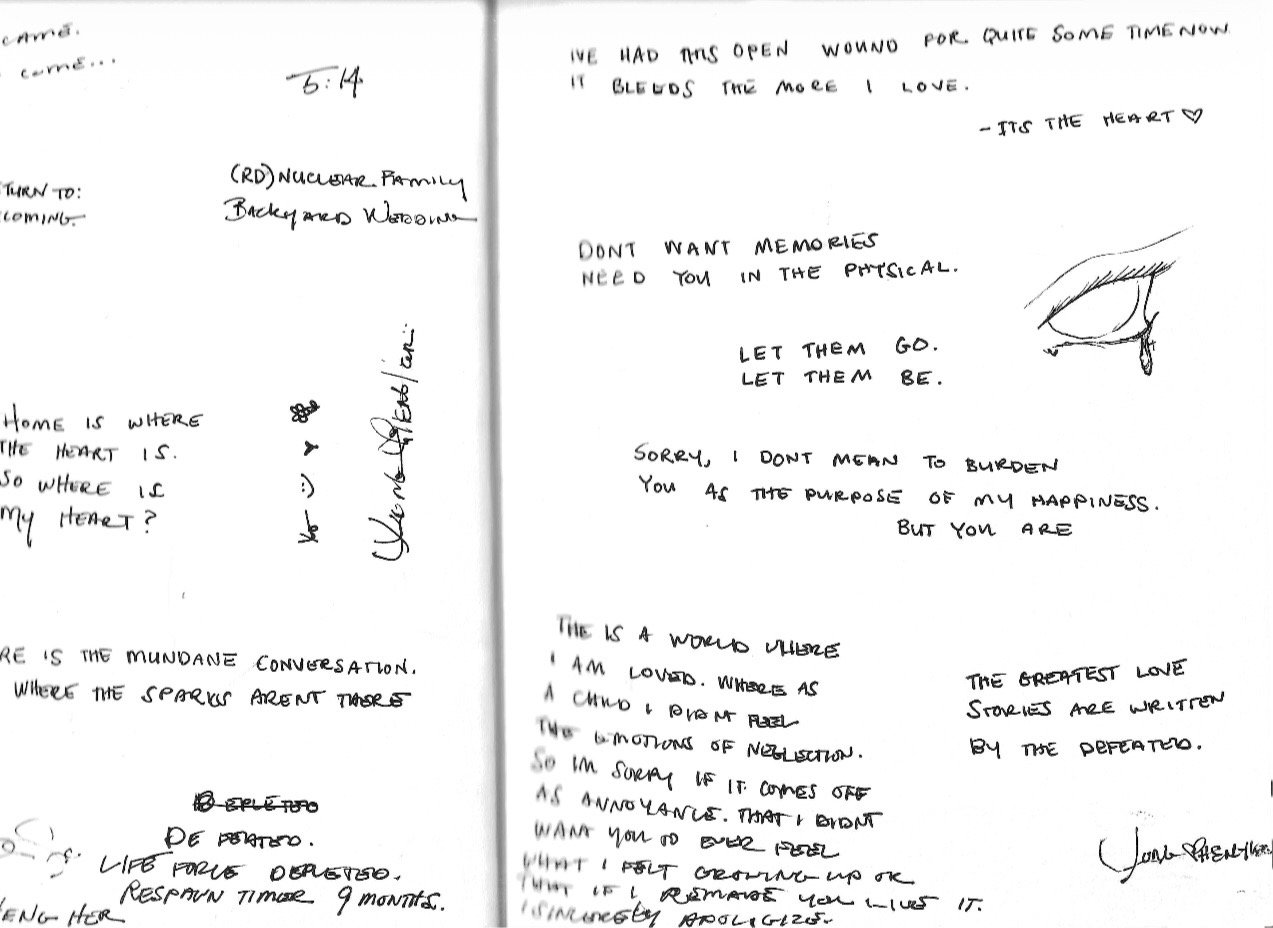 CAME.
COME...
5:14
TURN TO:
COMING.
(RD) NUCLEAR FAMILY
BACKYARD WEDDING
HOME IS WHERE
THE HEART IS.
SO WHERE IS
MY HEART?
RE IS THE MUNDANE CONVERSATION.
WHERE THE SPARKS ARENT THERE
DEPLETED
DEFEATED.
LIFE FORCE DEPLETED.
RESPAWN TIMER 9 MONTHS.
HENG HER
IVE HAD THIS OPEN WOUND FOR QUITE SOME TIME NOW
IT BLEEDS THE MORE I LOVE.
- ITS THE HEART ♡
DONT WANT MEMORIES
NEED YOU IN THE PHYSICAL.
LET THEM GO.
LET THEM BE.
SORRY, I DONT MEAN TO BURDEN
YOU AS THE PURPOSE OF MY HAPPINESS.
BUT YOU ARE
THE IS A WORLD WHERE
I AM LOVED. WHERE AS
A CHILD I DIDNT FEEL
THE EMOTIONS OF NEGLECTION.
SO IM SORRY IF IT COMES OFF
AS ANNOYANCE. THAT I DIDNT
WANT YOU TO EVER FEEL
WHAT I FELT GROWING UP OR
THAT IF I REMADE YOU LIVE IT.
I SINCERELY APOLIGIZE.
THE GREATEST LOVE
STORIES ARE WRITTEN
BY THE DEFEATED.